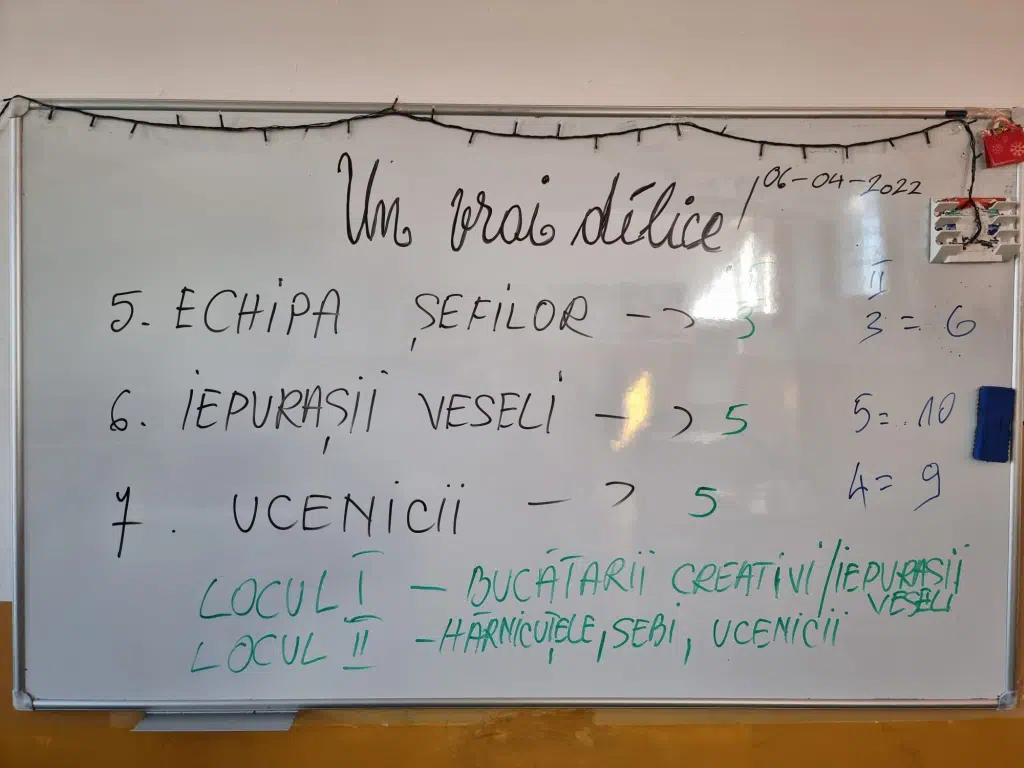 Un vrai délice! 06-04-2022
I II
5. ECHIPA ȘEFILOR -> 3 3 = 6
6. IEPURAȘII VESELI -> 5 5 = 10
7. UCENICII -> 5 4 = 9
LOCUL I - BUCĂTARII CREATIVI/IEPURAȘII VESELI
LOCUL II - HĂRNICUȚELE, SEBI, UCENICII